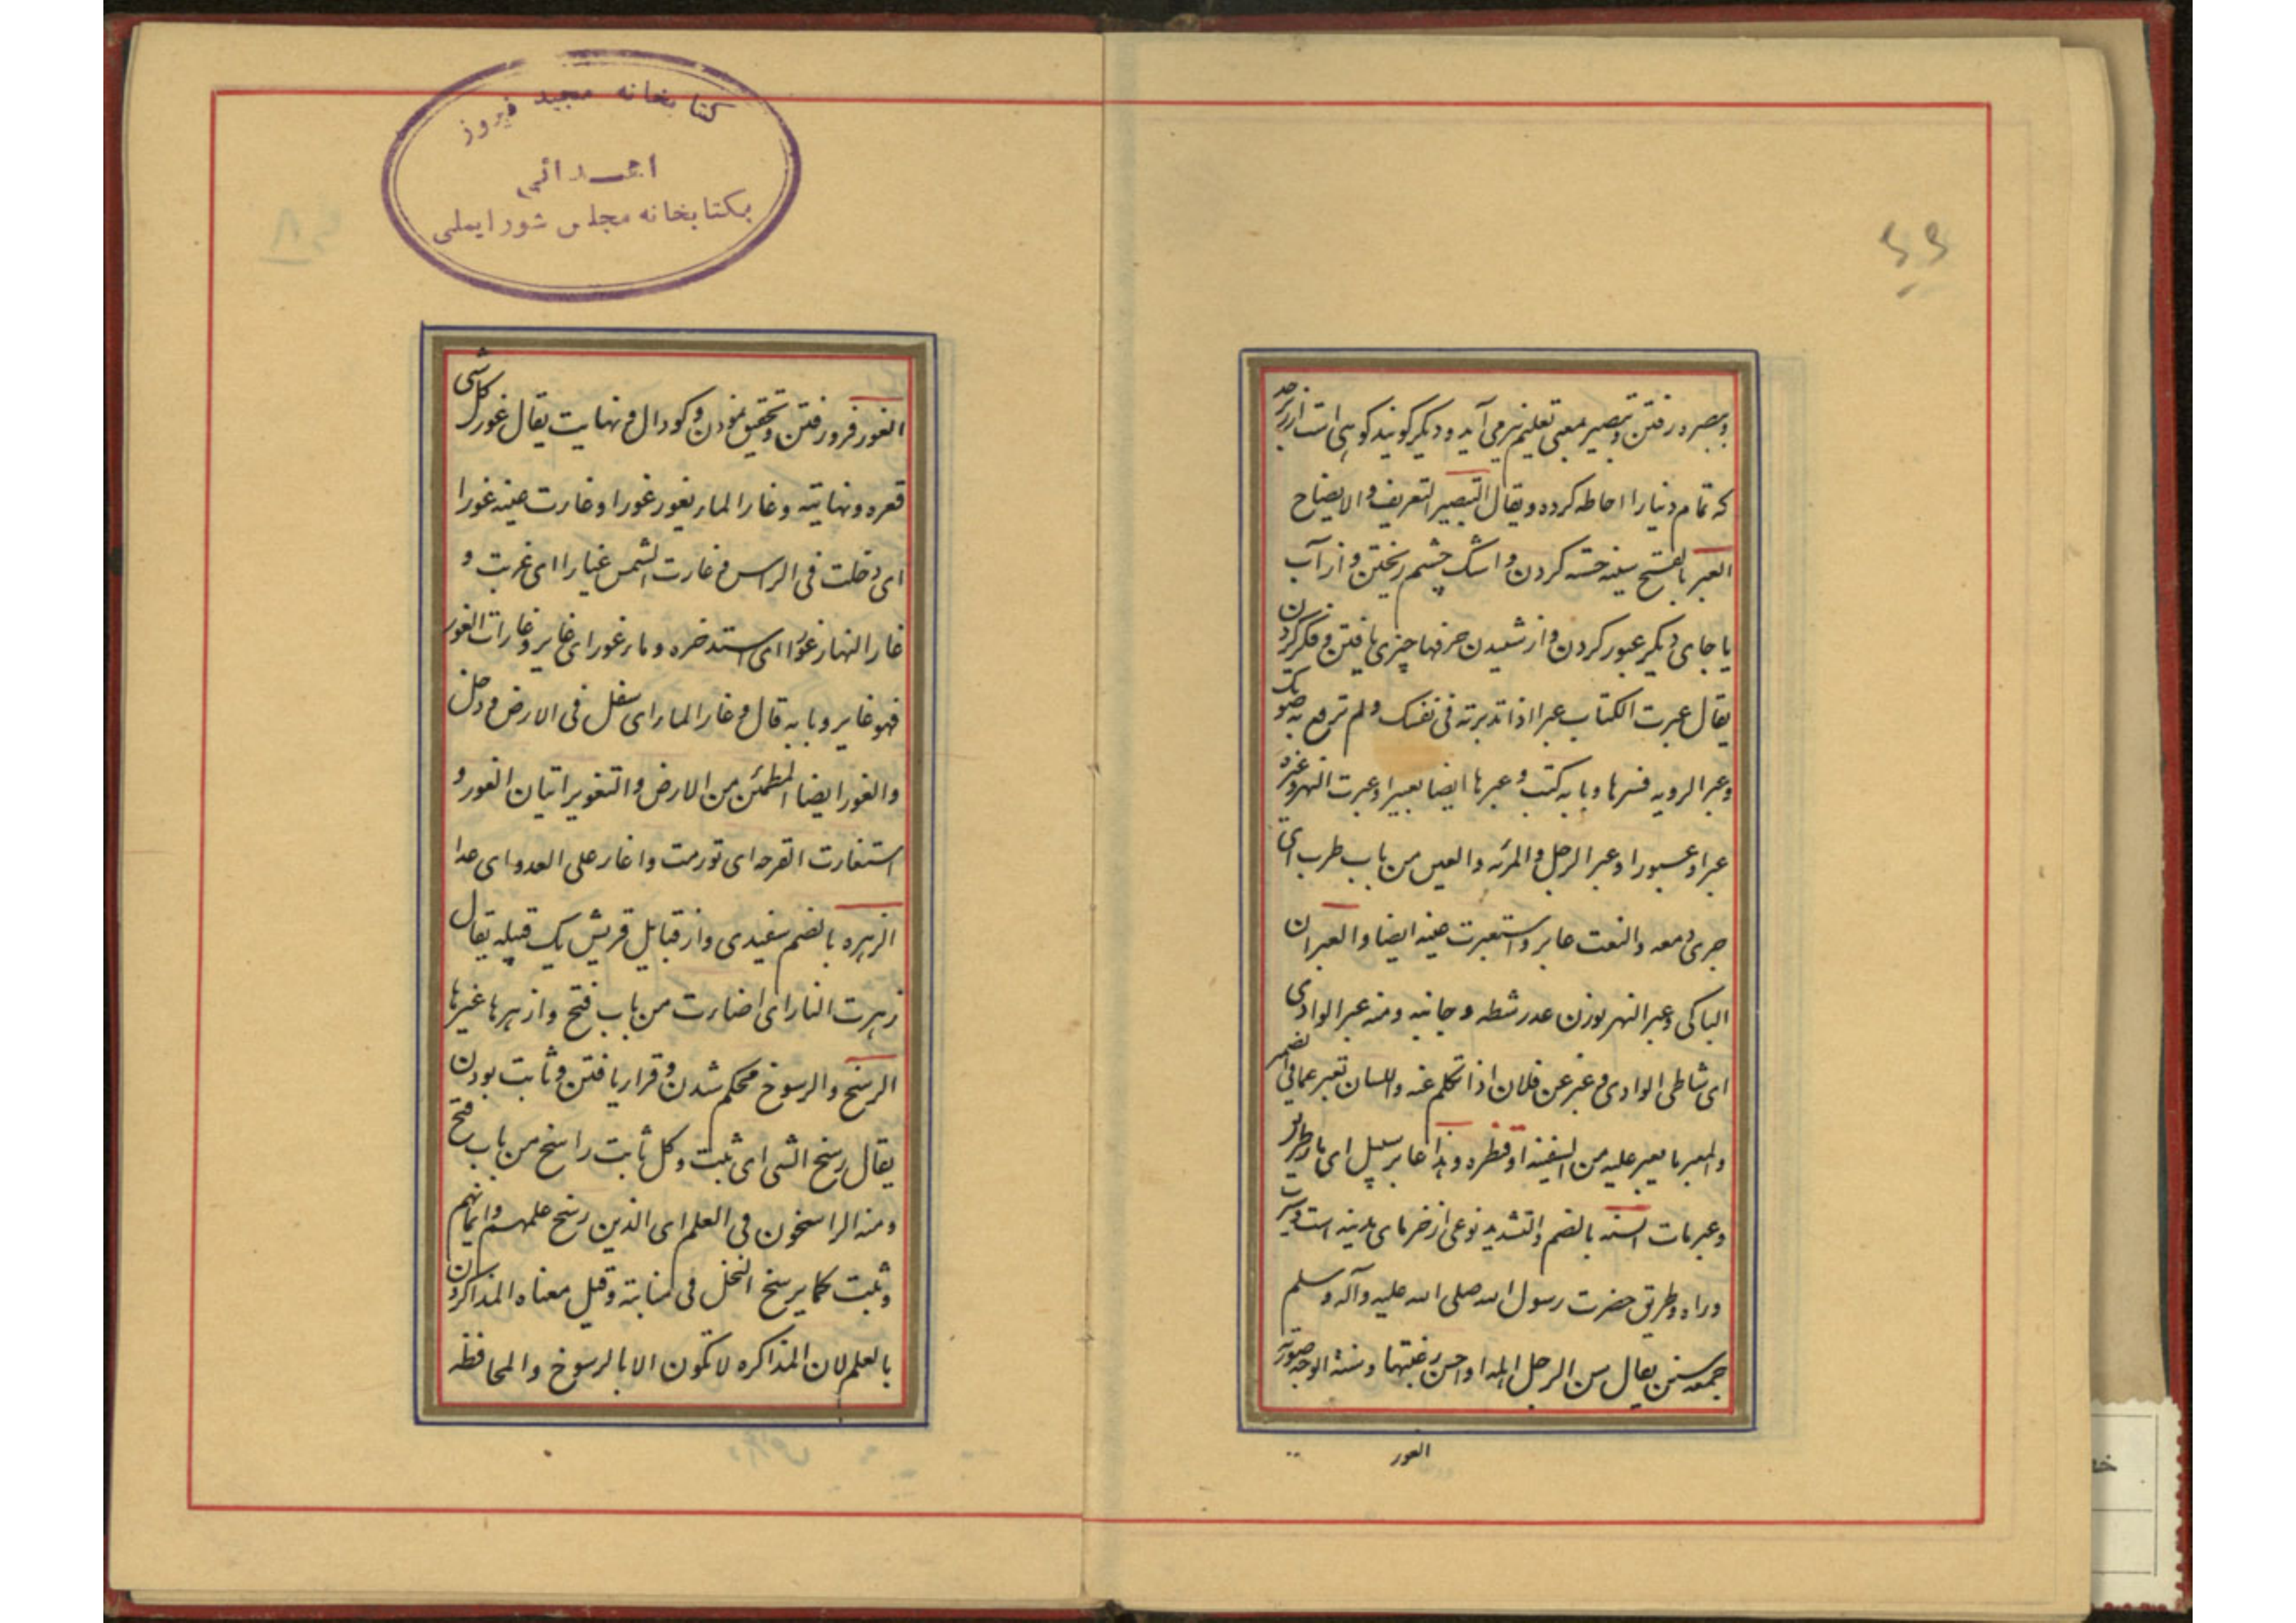 وبصره رفتن وتبصیر بمعنی تعلیم نیز می آید ودیگر گویند کوهی است از زبرجد
که تمام دنیا را احاطه کرده ویقال التبصیر التعریف والایضاح
العبر بالفتح سینه خسته کردن واشک چشم ریختن واز آب
یا جای دیگر عبور کردن واز شنیدن حرفها چیزی یافتن وفکر کردن
یقال عبرت الکتاب عبرا اذا تدبرته فی نفسک ولم ترفع به صوتک
وعبر الرویه فسرها وبابه کتب وعبرها ایضا تعبیرا وعبرت النهر وغیره
عبرا وعبورا وعبر الرجل والمرئه والعین من باب طرب ای
جری دمعه والنعت عابر واستعبرت عینه ایضا والعبران
الباکی وعبر النهر بوزن عدر شطه وجانبه ومنه عبر الوادی
ای شاطی الوادی وعبر عن فلان اذا تکلم عنه واللسان تعبر عما فی الضمیر
والمعبر ما یعبر علیه من السفینه او قنطره وهذا عابر سبیل ای مار طریق
وعبرمات السنه بالضم والتشدید نوعی از خرمای مدینه است وسیرت
وراه وطریق حضرت رسول الله صلی الله علیه وآله وسلم
جمعه سنن یقال سن الرجل ابله اذا احسن رعیتها وسنة الوجه صورته
الغور
کتابخانه مجید فیروز
اهدائی
بکتابخانه مجلس شورایملی
الغور فرو رفتن وتحقیق نمودن وکودال ونهایت یقال غور کل شی
قعره ونهایته وغار الماء یغور غورا وغارت عینه غورا
ای دخلت فی الراس وغارت الشمس غیارا ای غربت و
غار النهار غورا ای استد حره وماء غور ای غایر وغارات الغور
فهو غایر وبابه قال وغار الماء ای سفل فی الارض ودخل
والغور ایضا المطمئن من الارض والتغویر اتیان الغور و
استغارت القرحه ای تورمت واغار علی العدو ای عدا
الزهره بالضم سفیدی واز قبایل قریش یک قبیله یقال
زهرت النار ای اضاءت من باب فتح وازهرها غیرها
الرسخ والرسوخ محکم شدن وقرار یافتن وثابت بودن
یقال رسخ الشی ای ثبت وکل ثابت راسخ من باب فتح
ومنه الراسخون فی العلم ای الذین رسخ علمهم وایمانهم
وثبت کما یرسخ النخل فی منابته وقیل معناه المذاکرون
بالعلم لان المذاکره لا تکون الا بالرسوخ والمحافظه